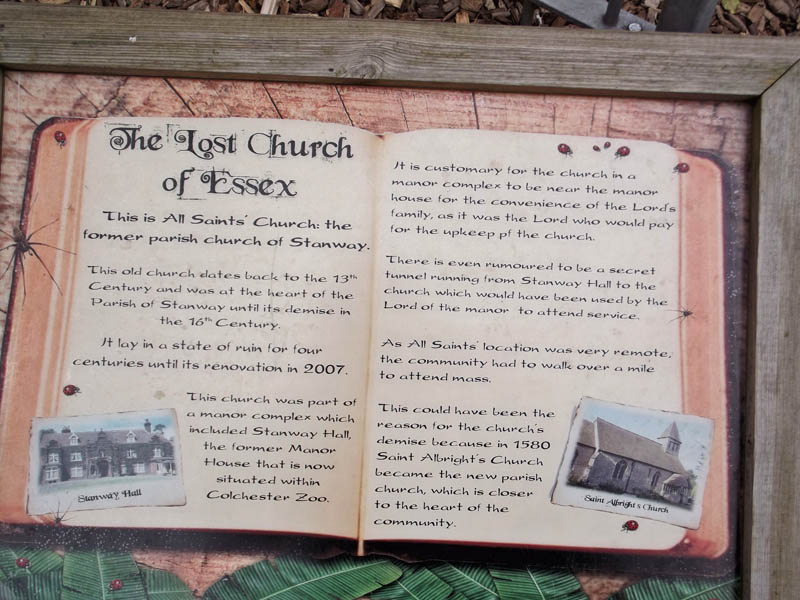 The Lost Church
of Essex
This is All Saints' Church: the
former parish church of Stanway.
This old church dates back to the 13th
Century and was at the heart of the
Parish of Stanway until its demise in
the 16th Century.
It lay in a state of ruin for four
centuries until its renovation in 2007.
This church was part of
a manor complex which
included Stanway Hall,
the former Manor
House that is now
situated within
Colchester Zoo.
Stanway Hall
It is customary for the church in a
manor complex to be near the manor
house for the convenience of the Lord's
family, as it was the Lord who would pay
for the upkeep pf the church.
There is even rumoured to be a secret
tunnel running from Stanway Hall to the
church which would have been used by the
Lord of the manor to attend service.
As All Saints' location was very remote,
the community had to walk over a mile
to attend mass.
This could have been the
reason for the church's
demise because in 1580
Saint Albright's Church
became the new parish
church, which is closer
to the heart of the
community.
Saint Albright's Church